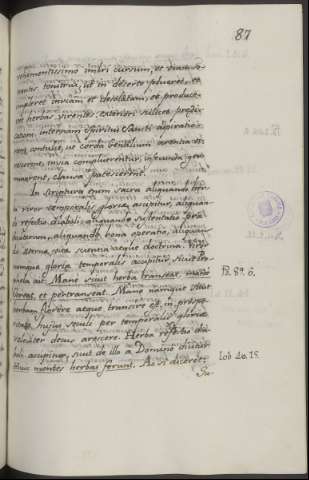 87
vehementissimo imbri cursum, et viam so-
nantis tonitrui, ut in deserto plueret, et
impleret inviam et desolatam, et produce-
ret herbas virentes. exteriori scilicet prædi-
cationi, internam Spiritus Sancti aspiratio-
nem contulit, ut corda Gentilium arentia vi-
rescerent, invia
clausa patescerent.
In Scriptura enim sacra aliquando her-
ba viror temporalis gloriæ accipitur, aliquan-
do refectio diaboli, aliquando sustentatio præ-
dicatorum, aliquando bona operatio, aliquan-
do æternæ vitæ scientia atque doctrina. Viror
namque gloriæ temporalis accipitur, sicut Pro-
pheta ait. Mane sicut herba transeat, mane
floreat, et pertranseat. Mane namque sicut
herbam florere atque transire est, in prospe-
ritate hujus seculi per temporalis gloriæ
decus arescere. Herba refectio dia-
boli accipitur, sicut de illo a Domino dicitur.
Huic montes herbas ferunt. Ac si diceret:
Ps. 89. 6.
Iob. 40. 15.